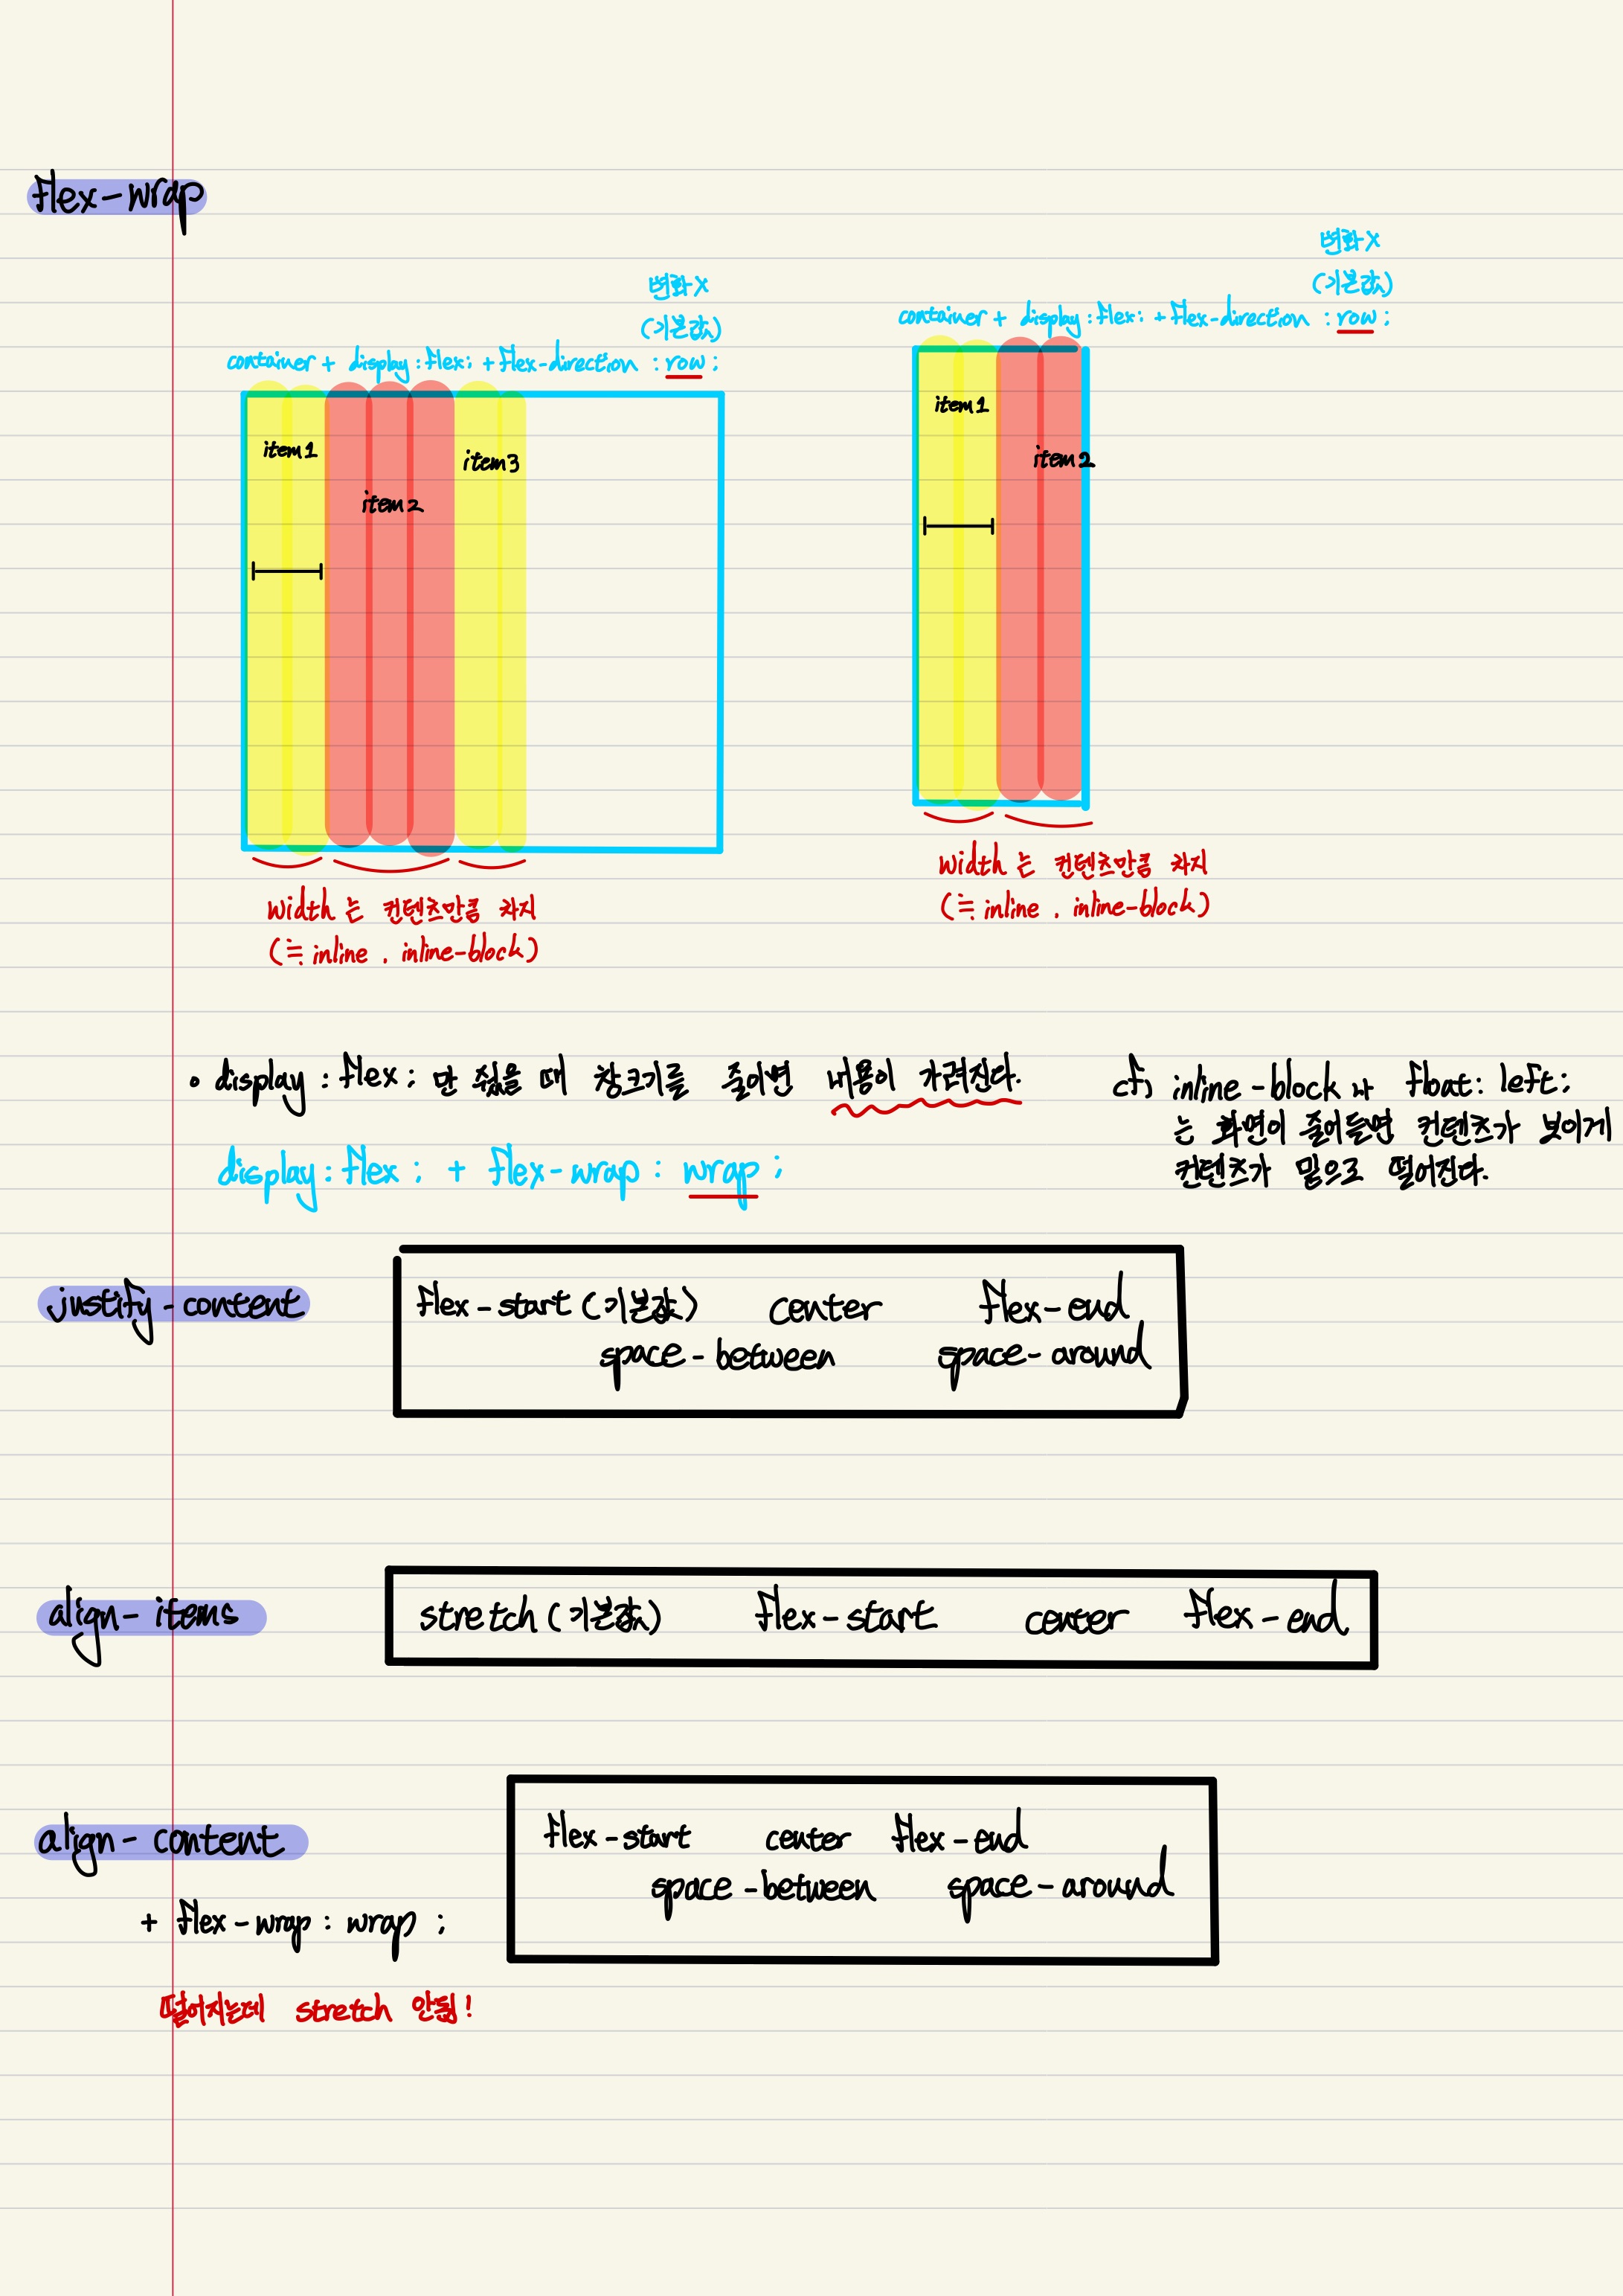 flex-wrap
변화 X
(기본값)
container + display : flex; + flex-direction : row ;
item1
item2
item3
width 는 컨텐츠만큼 차지
(≒ inline , inline-block)
변화 X
(기본값)
container + display : flex; + flex-direction : row ;
item1
item2
width 는 컨텐츠만큼 차지
(≒ inline , inline-block)
• display : flex ; 만 줬을 때 창크기를 줄이면 내용이 가려진다.
display : flex ; + flex-wrap : wrap ;
cf) inline-block 나 float : left ;
는 화면이 줄어들면 컨텐츠가 보이게
컨텐츠가 밑으로 떨어진다.
justify-content
flex-start (기본값) center flex-end
space-between space-around
align-items
stretch (기본값) flex-start center flex-end
align-content
+ flex-wrap : wrap ;
떨어지는데 stretch 안됨!
flex-start center flex-end
space-between space-around